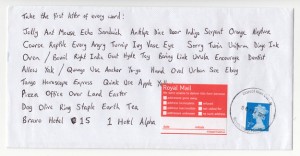 Take the first letter of every word!
Jelly Ant Mouse Echo Sandwich Antelope Dice Bear Indigo Serpent Orange Neptune
Coarse Raffle Every Angry Turnip Ivy Vase Eye Sorry Train Uniform Dingo Ink
Oven / Board Right India Goat Hyde Toy Being Link Umbrella Encourage Dentist
Allow Yak / Quango Use Anchor Yoga Hand Oval Urban Sea Ebay
Tango Horoscope Express Quink Use Apple Yellow
Pizza Office Over Land Easter
Dog Olive Ring Staple Earth Tea
Bravo Hotel 15 1 Hotel Alpha
Royal Mail